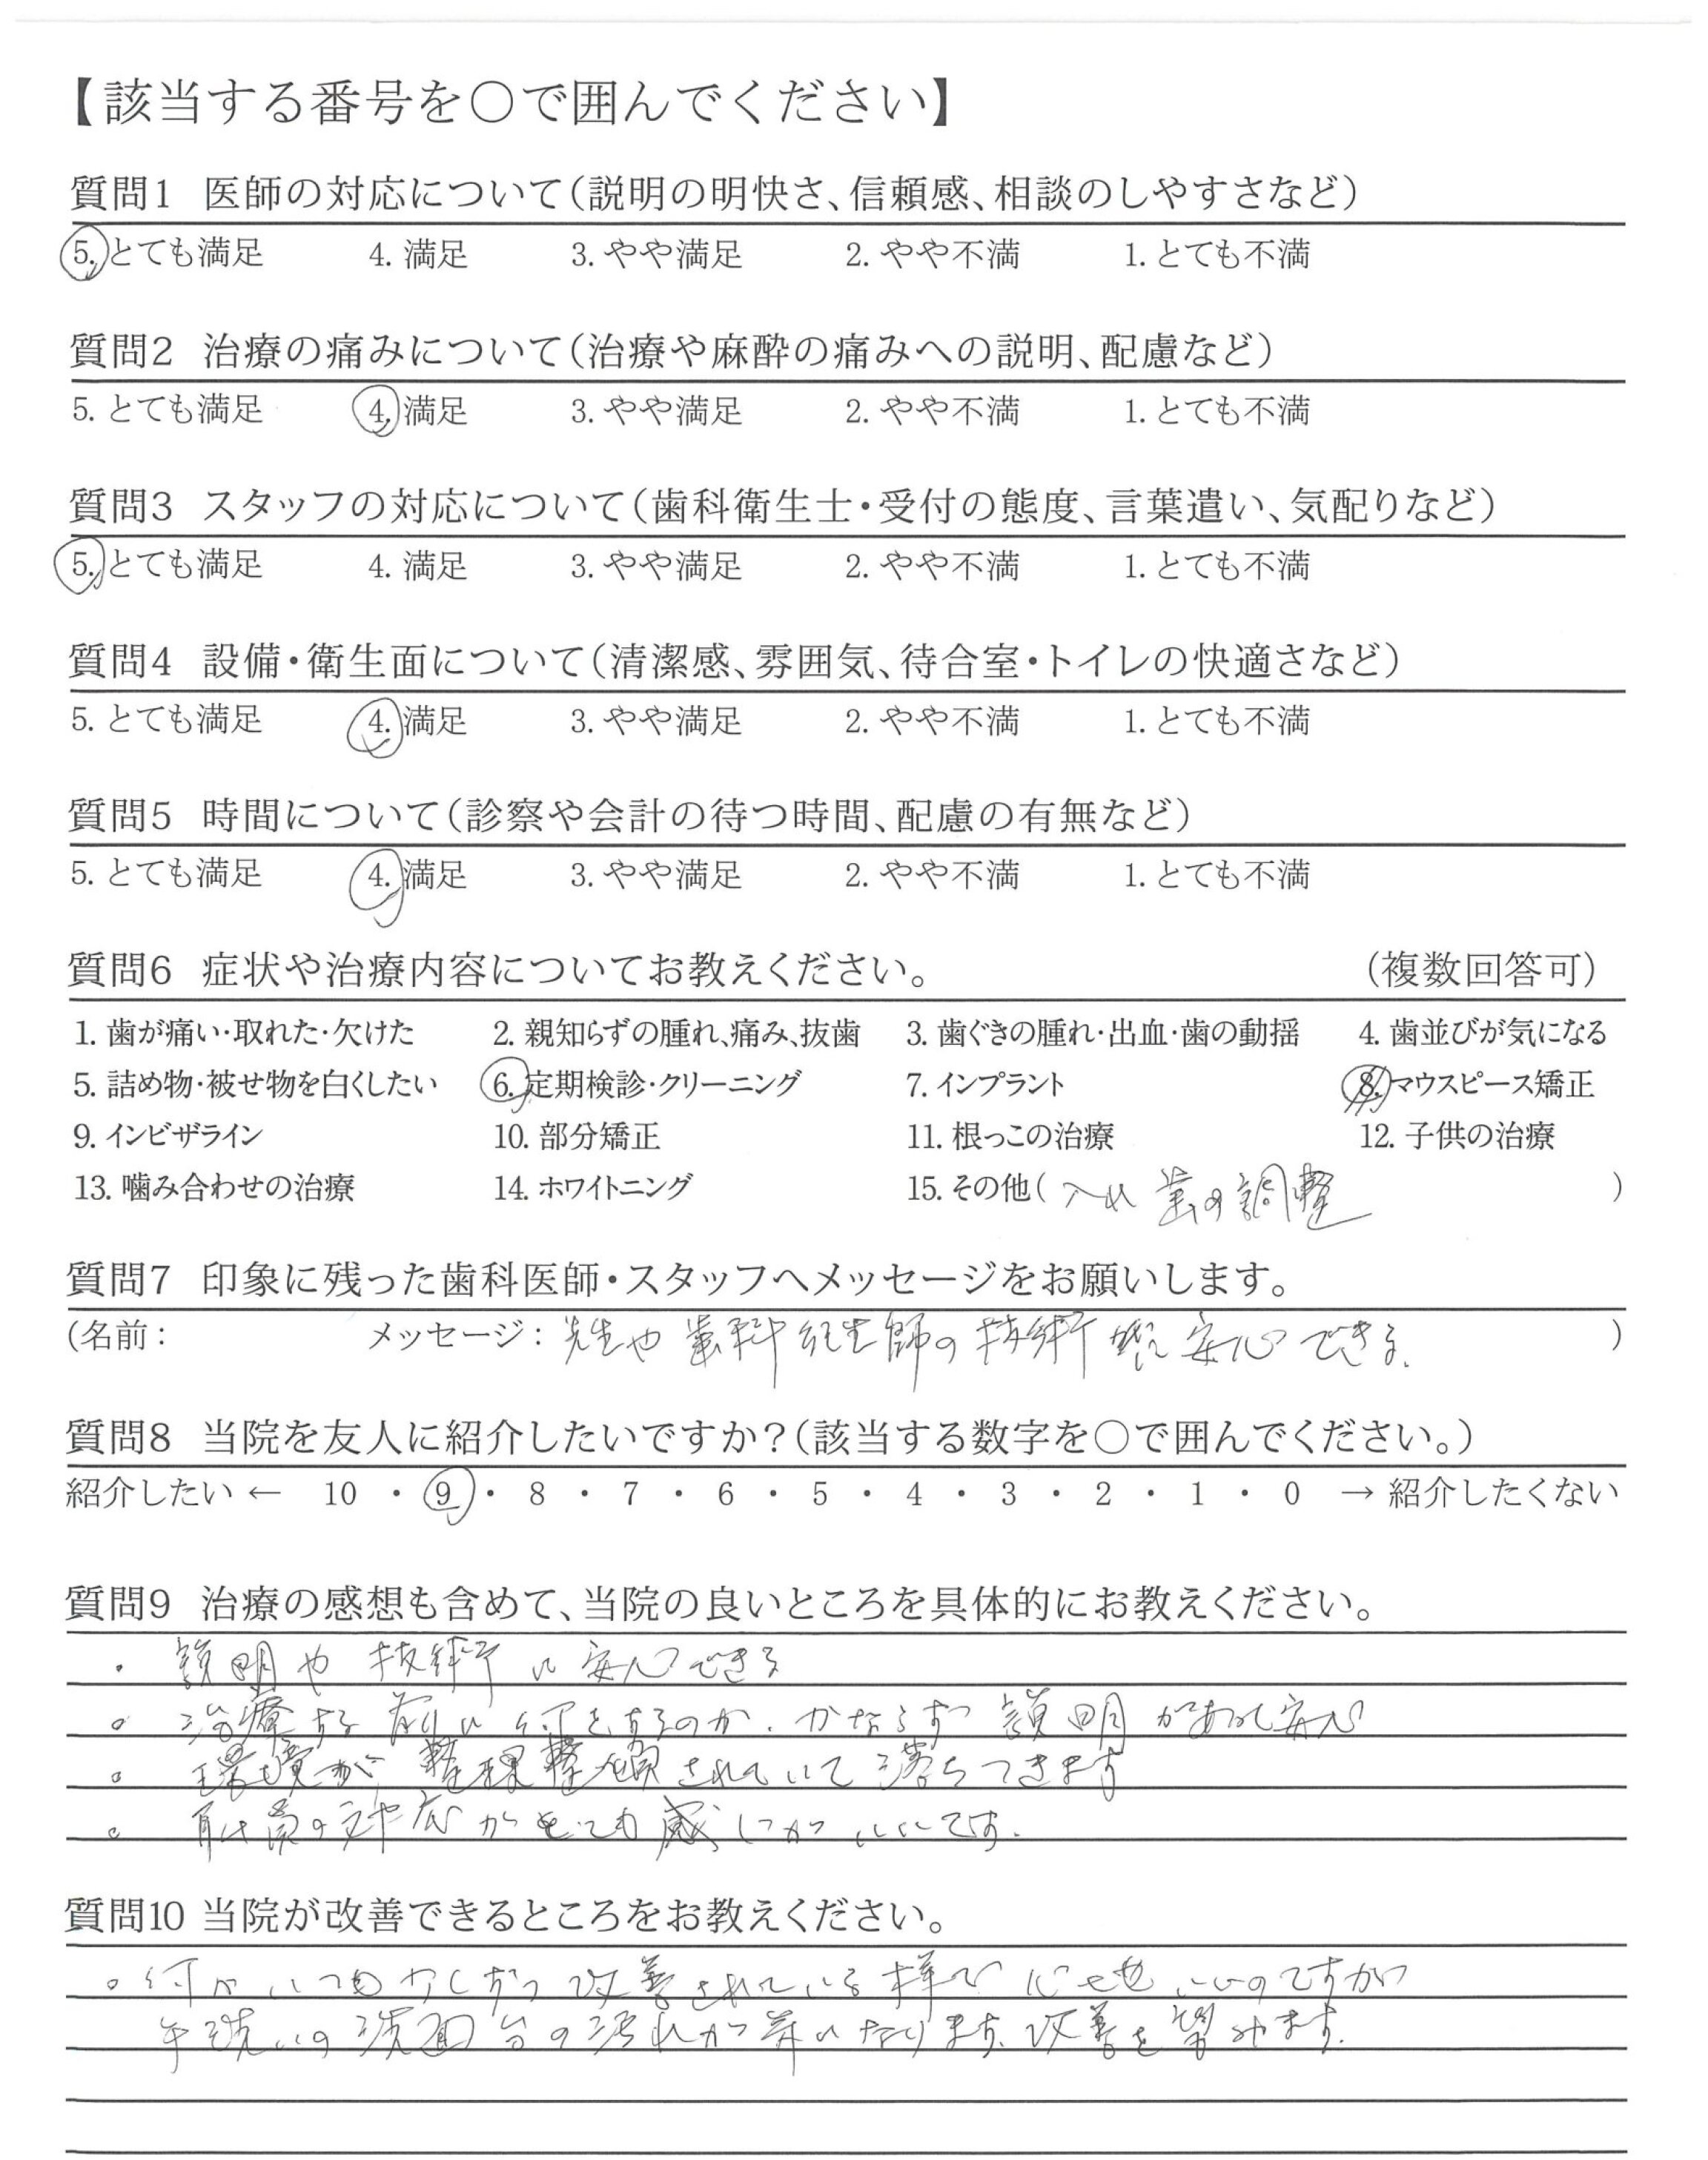 【該当する番号を○で囲んでください】
質問1 医師の対応について(説明の明快さ、信頼感、相談のしやすさなど)
5. とても満足 4. 満足 3. やや満足 2. やや不満 1. とても不満
質問2 治療の痛みについて(治療や麻酔の痛みへの説明、配慮など)
5. とても満足 4. 満足 3. やや満足 2. やや不満 1. とても不満
質問3 スタッフの対応について(歯科衛生士・受付の態度、言葉遣い、気配りなど)
5. とても満足 4. 満足 3. やや満足 2. やや不満 1. とても不満
質問4 設備・衛生面について(清潔感、雰囲気、待合室・トイレの快適さなど)
5. とても満足 4. 満足 3. やや満足 2. やや不満 1. とても不満
質問5 時間について(診察や会計の待つ時間、配慮の有無など)
5. とても満足 4. 満足 3. やや満足 2. やや不満 1. とても不満
質問6 症状や治療内容についてお教えください。 (複数回答可)
1. 歯が痛い・取れた・欠けた 2. 親知らずの腫れ、痛み、抜歯 3. 歯ぐきの腫れ・出血・歯の動揺 4. 歯並びが気になる
5. 詰め物・被せ物を白くしたい 6. 定期検診・クリーニング 7. インプラント 8. マウスピース矯正
9. インビザライン 10. 部分矯正 11. 根っこの治療 12. 子供の治療
13. 噛み合わせの治療 14. ホワイトニング 15. その他( 入れ歯の調整 )
質問7 印象に残った歯科医師・スタッフへメッセージをお願いします。
(名前: メッセージ: 先生や歯科衛生師の技術 安心できる. )
質問8 当院を友人に紹介したいですか?(該当する数字を○で囲んでください。)
紹介したい ← 10 ・ 9 ・ 8 ・ 7 ・ 6 ・ 5 ・ 4 ・ 3 ・ 2 ・ 1 ・ 0 → 紹介したくない
質問9 治療の感想も含めて、当院の良いところを具体的にお教えください。
・ 説明や技術に安心できる
。 治療する前に何をするのか、かならず説明があって安心
。 環境が整理整頓されていて落ちつきます
。 の対応がとても感じがいいです.
質問10 当院が改善できるところをお教えください。
。何かいつも少しずつ改善されている様で心地いいのですが
手洗いの洗面台の汚れが気になります.改善を望みます.